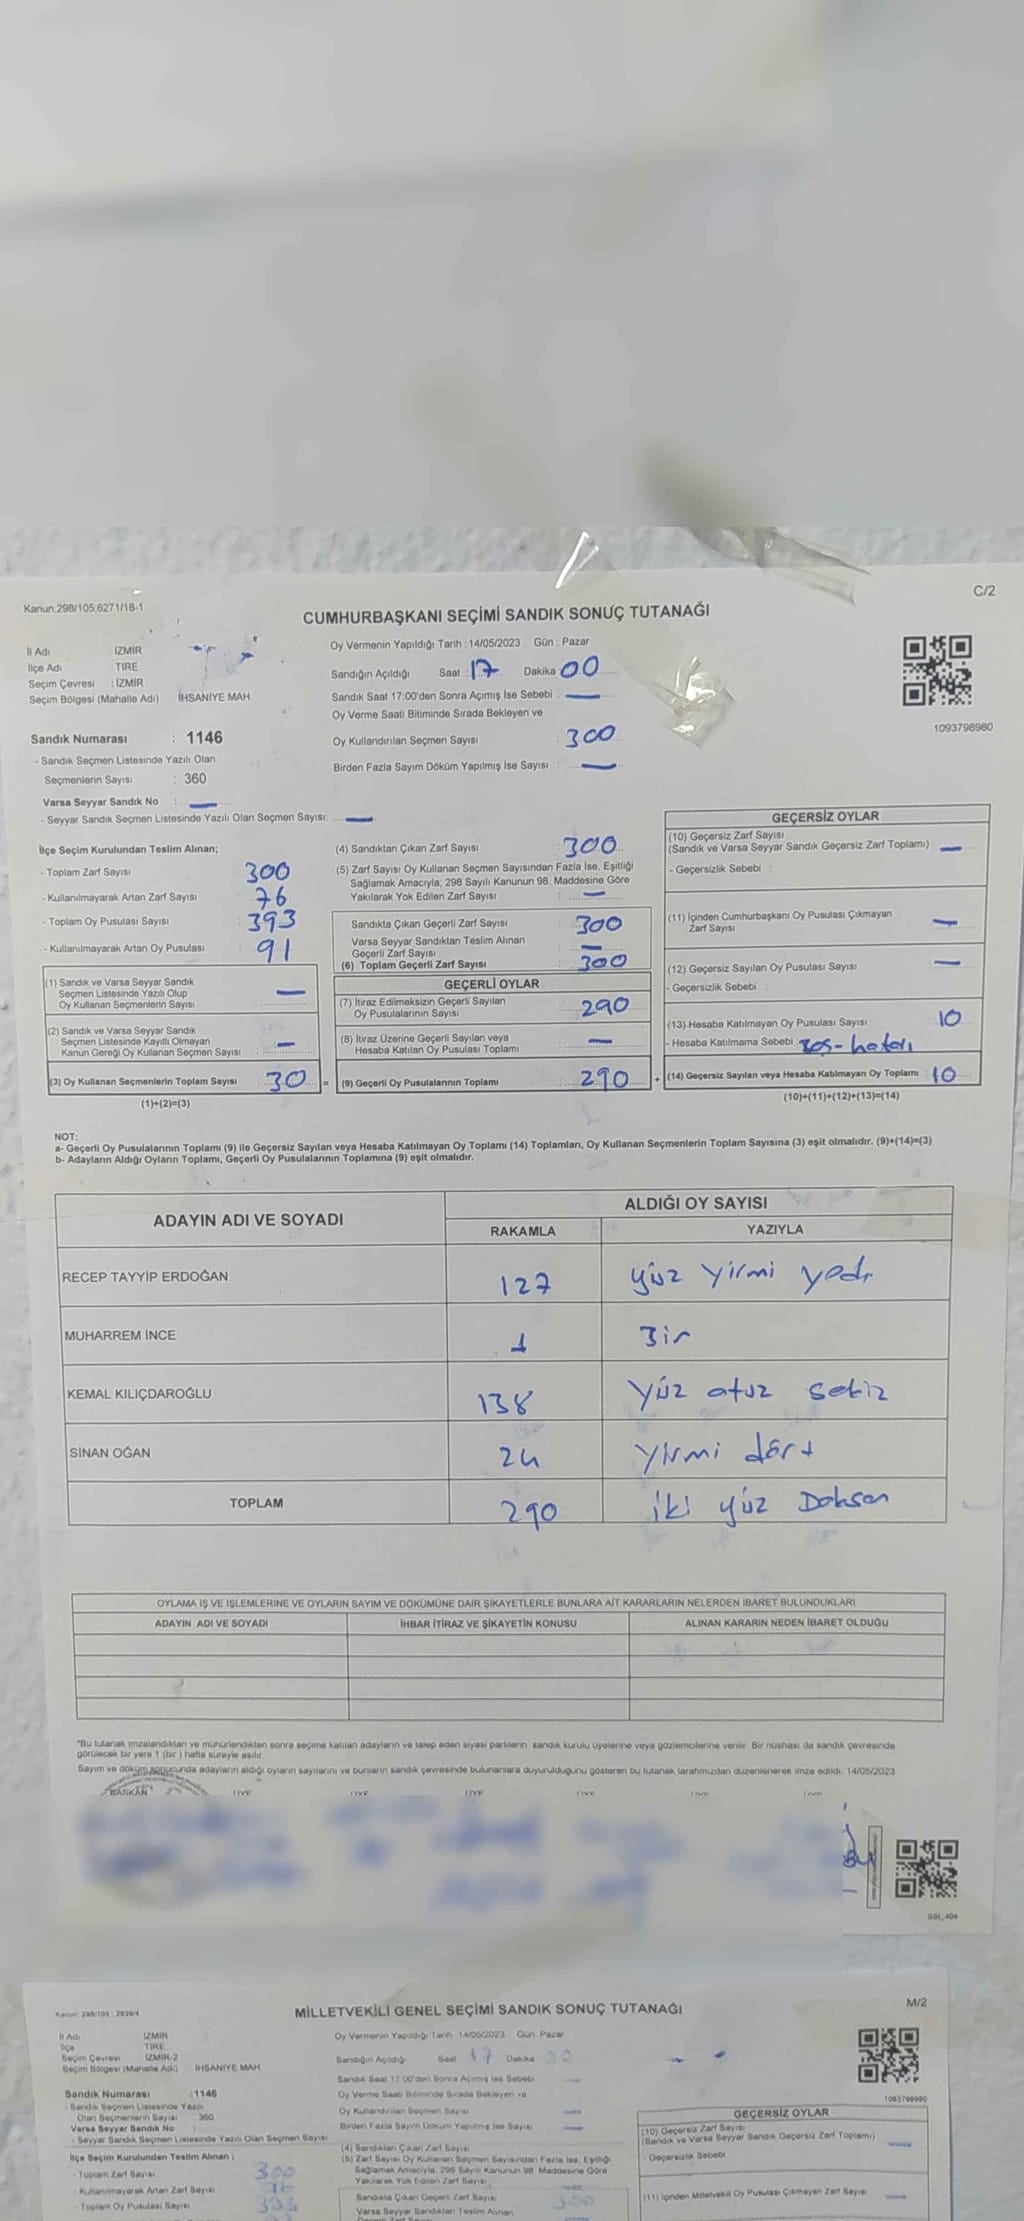 Kanun;298/105;6271/18-1
C/2
CUMHURBAŞKANI SEÇİMİ SANDIK SONUÇ TUTANAĞI
İl Adı : İZMİR
İlçe Adı TİRE
Seçim Çevresi : İZMİR
Seçim Bölgesi (Mahalle Adı) İHSANİYE MAH.
Oy Vermenin Yapıldığı Tarih : 14/05/2023 Gün : Pazar
Sandığın Açıldığı Saat : 17 Dakika : 00
Sandık Saat 17:00'den Sonra Açımış İse Sebebi : —
Oy Verme Saati Bitiminde Sırada Bekleyen ve
Oy Kullandırılan Seçmen Sayısı : 300
Birden Fazla Sayım Döküm Yapılmış İse Sayısı : —
1093798980
Sandık Numarası : 1146
- Sandık Seçmen Listesinde Yazılı Olan
Seçmenlerin Sayısı : 360
Varsa Seyyar Sandık No : —
- Seyyar Sandık Seçmen Listesinde Yazılı Olan Seçmen Sayısı: —
İlçe Seçim Kurulundan Teslim Alınan;
- Toplam Zarf Sayısı 300
- Kullanılmayarak Artan Zarf Sayısı : 76
- Toplam Oy Pusulası Sayısı : 393
- Kullanılmayarak Artan Oy Pusulası : 91
(1) Sandık ve Varsa Seyyar Sandık
Seçmen Listesinde Yazılı Olup
Oy Kullanan Seçmenlerin Sayısı : —
(2) Sandık ve Varsa Seyyar Sandık
Seçmen Listesinde Kayıtlı Olmayan
Kanun Gereği Oy Kullanan Seçmen Sayısı : —
(3) Oy Kullanan Seçmenlerin Toplam Sayısı : 30 =
(1)+(2)=(3)
(4) Sandıktan Çıkan Zarf Sayısı : 300
(5) Zarf Sayısı Oy Kullanan Seçmen Sayısından Fazla İse, Eşitliği
Sağlamak Amacıyla; 298 Sayılı Kanunun 98. Maddesine Göre
Yakılarak Yok Edilen Zarf Sayısı : —
Sandıkta Çıkan Geçerli Zarf Sayısı : 300
Varsa Seyyar Sandıktan Teslim Alınan
Geçerli Zarf Sayısı : —
(6) Toplam Geçerli Zarf Sayısı : 300
GEÇERLİ OYLAR
(7) İtiraz Edilmeksizin Geçerli Sayılan
Oy Pusulalarının Sayısı : 290
(8) İtiraz Üzerine Geçerli Sayılan veya
Hesaba Katılan Oy Pusulası Toplamı : —
(9) Geçerli Oy Pusulalarının Toplamı : 290 +
GEÇERSİZ OYLAR
(10) Geçersiz Zarf Sayısı
(Sandık ve Varsa Seyyar Sandık Geçersiz Zarf Toplamı) : —
- Geçersizlik Sebebi :
(11) İçinden Cumhurbaşkanı Oy Pusulası Çıkmayan
Zarf Sayısı —
(12) Geçersiz Sayılan Oy Pusulası Sayısı : —
- Geçersizlik Sebebi :
(13) Hesaba Katılmayan Oy Pusulası Sayısı : 10
- Hesaba Katılmama Sebebi :
(14) Geçersiz Sayılan veya Hesaba Katılmayan Oy Toplamı : 10
(10)+(11)+(12)+(13)=(14)
NOT:
a- Geçerli Oy Pusulalarının Toplamı (9) ile Geçersiz Sayılan veya Hesaba Katılmayan Oy Toplamı (14) Toplamları, Oy Kullanan Seçmenlerin Toplam Sayısına (3) eşit olmalıdır. (9)+(14)=(3)
b- Adayların Aldığı Oyların Toplamı, Geçerli Oy Pusulalarının Toplamına (9) eşit olmalıdır.
ADAYIN ADI VE SOYADI ALDIĞI OY SAYISI
RAKAMLA YAZIYLA
RECEP TAYYİP ERDOĞAN 127 yüz yirmi yedi
MUHARREM İNCE 1 Bir
KEMAL KILIÇDAROĞLU 138 Yüz otuz sekiz
SİNAN OĞAN 24 Yirmi dört
TOPLAM 290 iki yüz Doksan
OYLAMA İŞ VE İŞLEMLERİNE VE OYLARIN SAYIM VE DÖKÜMÜNE DAİR ŞİKAYETLERLE BUNLARA AİT KARARLARIN NELERDEN İBARET BULUNDUKLARI
ADAYIN ADI VE SOYADI İHBAR İTİRAZ VE ŞİKAYETİN KONUSU ALINAN KARARIN NEDEN İBARET OLDUĞU
*Bu tutanak imzalandıktan ve mühürlendikten sonra seçime katılan adayların ve talep eden siyasi partilerin sandık kurulu üyelerine veya gözlemcilerine verilir. Bir nüshası da sandık çevresinde
görülecek bir yere 1 (bir ) hafta süreyle asılır.
Sayım ve döküm sonucunda adayların aldığı oyların sayılarını ve bunların sandık çevresinde bulunanlara duyurulduğunu gösteren bu tutanak tarafımızdan düzenlenerek imza edildi. 14/05/2023
BAŞKAN ÜYE ÜYE ÜYE ÜYE ÜYE ÜYE
MİLLETVEKİLİ GENEL SEÇİMİ SANDIK SONUÇ TUTANAĞI
M/2
İl Adı İZMİR
İlçe TİRE
Seçim Çevresi İZMİR-2
Seçim Bölgesi (Mahalle Adı) : İHSANİYE MAH
Oy Vermenin Yapıldığı Tarih 14/05/2023 Gün Pazar
Sandığın Açıldığı Saat 17 Dakika
Sandık Saat 17:00'den Sonra Açımış İse Sebebi —
Oy Verme Saati Bitiminde Sırada Bekleyen ve
Oy Kullandırılan Seçmen Sayısı —
Birden Fazla Sayım Döküm Yapılmış İse Sayısı —
Sandık Numarası :1146
- Sandık Seçmen Listesinde Yazılı
Olan Seçmenlerin Sayısı 360
Varsa Seyyar Sandık No
- Seyyar Sandık Seçmen Listesinde Yazılı Olan Seçmen Sayısı
İlçe Seçim Kurulundan Teslim Alınan :
- Toplam Zarf Sayısı 300
- Kullanılmayarak Artan Zarf Sayısı 76
- Toplam Oy Pusulası Sayısı
(4) Sandıktan Çıkan Zarf Sayısı
(5) Zarf Sayısı Oy Kullanan Seçmen Sayısından Fazla İse, Eşitliği
Sağlamak Amacıyla, 298 Sayılı Kanunun 98. Maddesine Göre
Yakılarak Yok Edilen Zarf Sayısı
Sandıkta Çıkan Geçerli Zarf Sayısı 300
Varsa Seyyar Sandıktan Teslim Alınan
GEÇERSİZ OYLAR
(10) Geçersiz Zarf Sayısı
(Sandık ve Varsa Seyyar Sandık Geçersiz Zarf Toplamı) —
- Geçersizlik Sebebi
(11) İçinden Milletvekili Oy Pusulası Çıkmayan Zarf Sayısı —